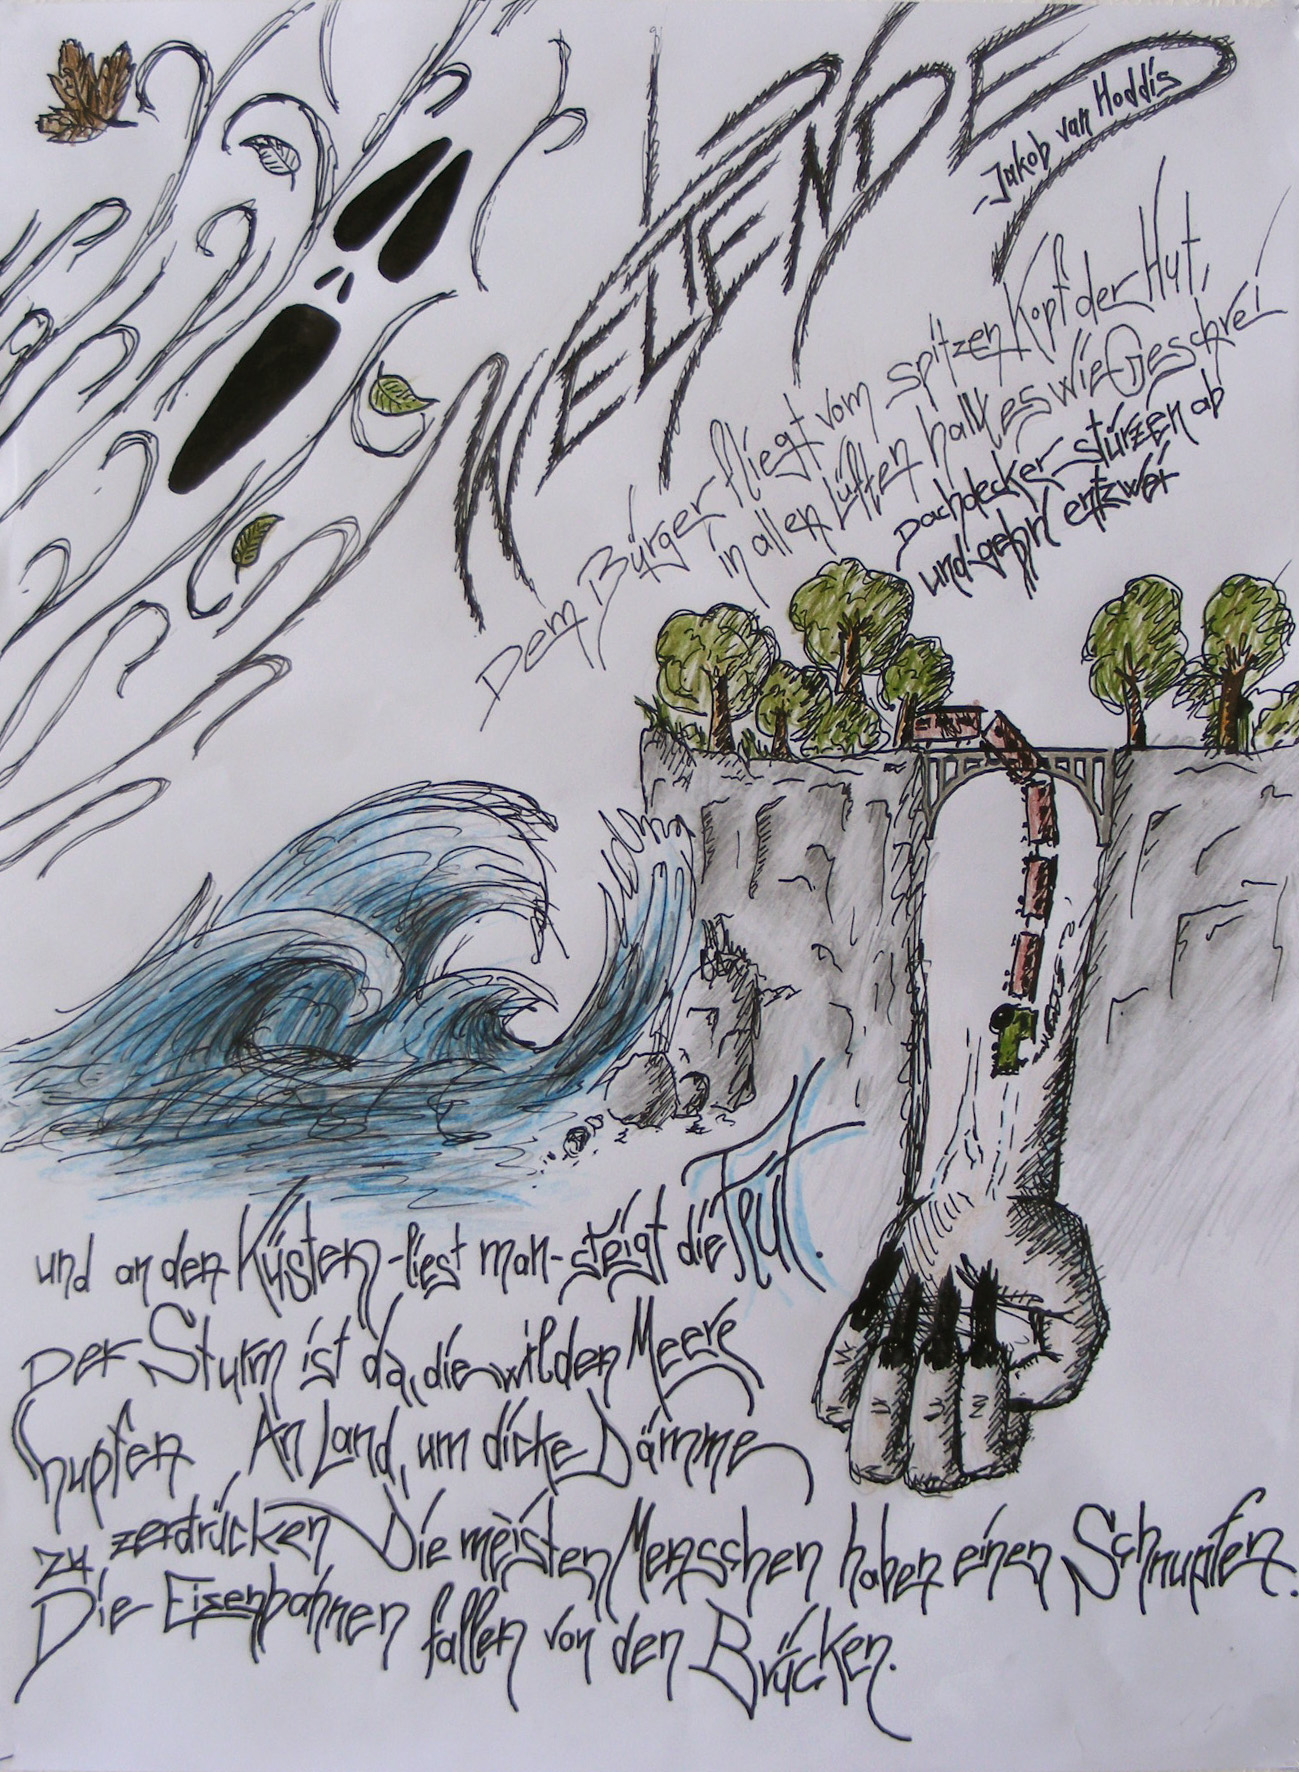 WELTENDE
Jakob van Hoddis
Dem Bürger fliegt vom spitzen Kopf der Hut,
in allen Lüften hallt es wie Geschrei
Dachdecker stürzen ab
und gehn entzwei
und an den Küsten -liest man- steigt die Flut.
Der Sturm ist da, die wilden Meere
hupfen An Land, um dicke Dämme
zu zerdrücken Die meisten Menschen haben einen Schnupfen.
Die Eisenbahnen fallen von den Brücken.